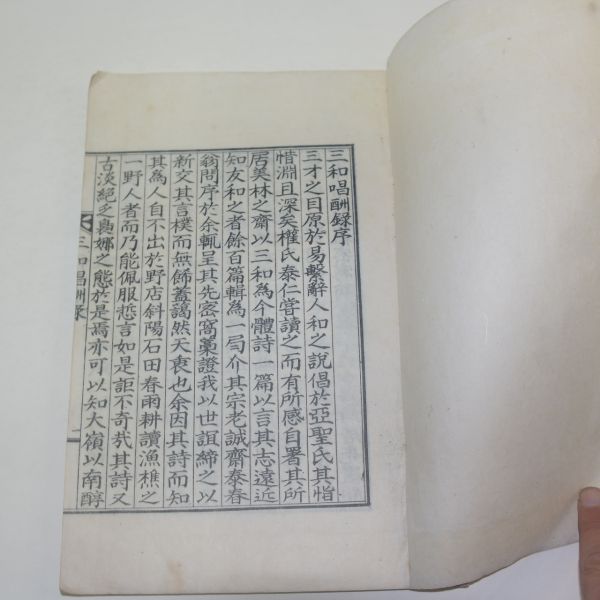 三和唱酬録序
三才之目原於易繫辭人和之說倡於亞聖氏其恉
惜淵且深矣權氏泰仁嘗讀之而有所感自署其所
居美林之齋以三和為今體詩一篇以言其志遠近
知友和之者餘百篇輯為一局介其宗老誠齋泰春
翁問序於余輒呈其先密窩藁證我以世誼締之以
新交其言樸而無飾蓋藹然天衷也余因其詩而知
其為人自不出於野店斜陽石田春雨耕讀漁樵之
一野人者而乃能佩服悊言如是詎不奇哉其詩又
古淡絕乏裊娜之態於是焉亦可以知大嶺以南醇
三和唱酬录
一